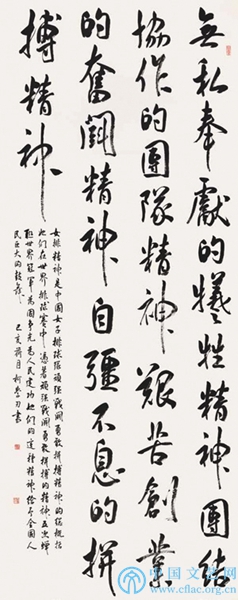 無私奉獻的犧牲精神團結
協作的團隊精神艱苦創業
的奮鬪精神自彊不息的拼
搏精神
女排精神是中國女子排球隊頑強戰鬪勇敢拼搏精神的總概括
她們在世界排球賽中憑着頑強戰鬪勇敢拼搏的精神五次蟬
聯世界冠軍為國爭光為人民建功她們的這種精神給予全國人
民巨大的鼓舞 己亥荷月柯書
中国文艺网
www.cflac.org.cn